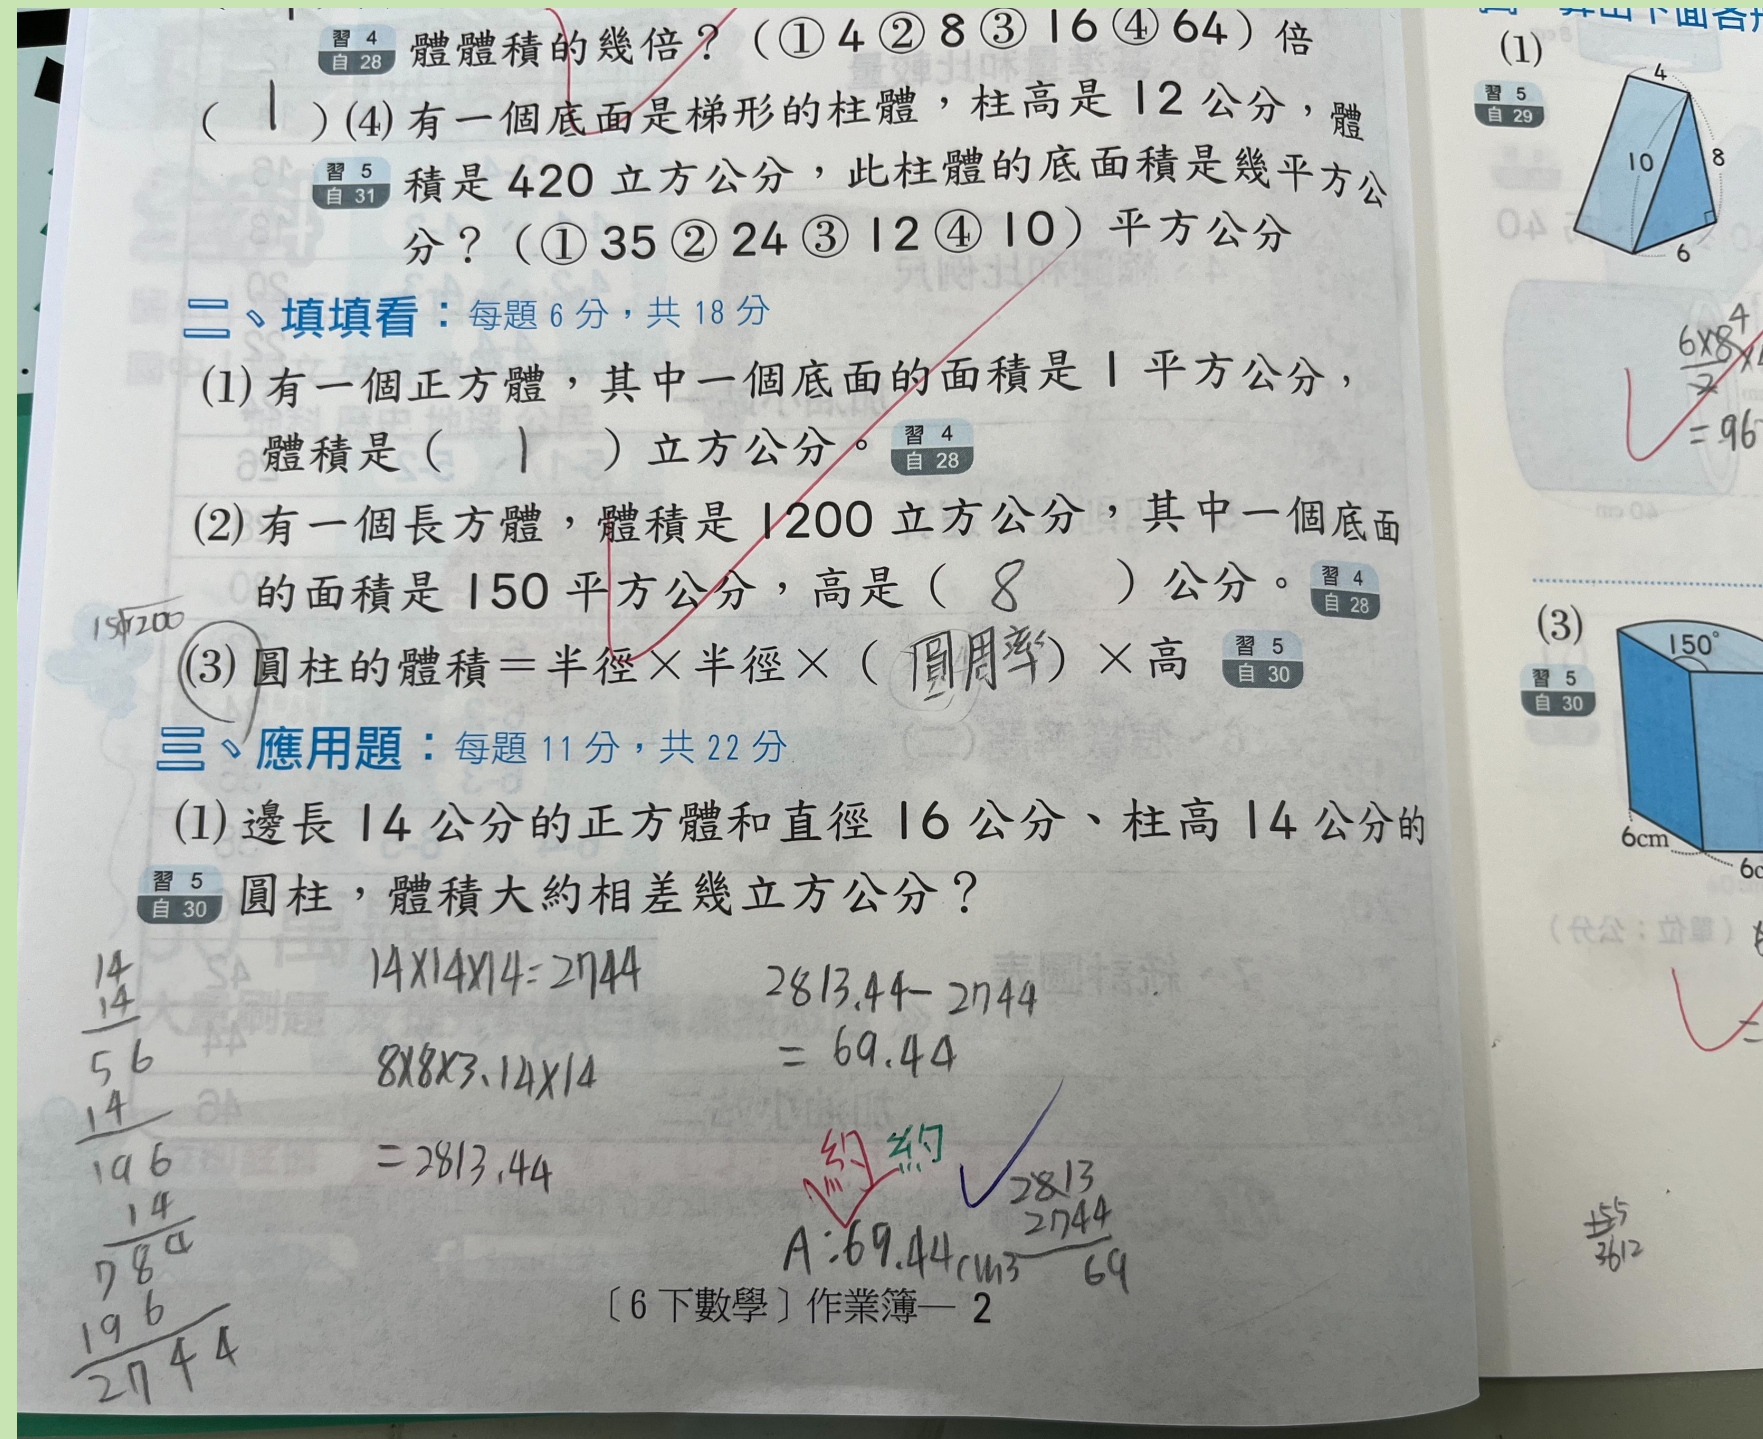 習 4
自 28
體體積的幾倍？（① 4 ② 8 ③ 16 ④ 64）倍
（ 1 ）(4) 有一個底面是梯形的柱體，柱高是 12 公分，體
習 5
自 31
積是 420 立方公分，此柱體的底面積是幾平方公
分？（① 35 ② 24 ③ 12 ④ 10）平方公分
二、填填看：每題 6 分，共 18 分
(1) 有一個正方體，其中一個底面的面積是 1 平方公分，
體積是（ 1 ）立方公分。
習 4
自 28
(2) 有一個長方體，體積是 1200 立方公分，其中一個底面
的面積是 150 平方公分，高是（ 8 ）公分。
習 4
自 28
(3) 圓柱的體積＝半徑×半徑×（ 圓周率 ）×高
習 5
自 30
三、應用題：每題 11 分，共 22 分
(1) 邊長 14 公分的正方體和直徑 16 公分、柱高 14 公分的
習 5
自 30
圓柱，體積大約相差幾立方公分？
14
14
56
14
196
14
784
196
2744
14×14×14=2744
8×8×3.14×14
=2813.44
2813.44-2744
= 69.44
約 約
A:69.44cm3
2813
2744
69
〔6 下數學〕作業簿— 2
(1)
習 5
自 29
4
10
8
6
6×8
4
2
=96
(3)
習 5
自 30
150°
6cm